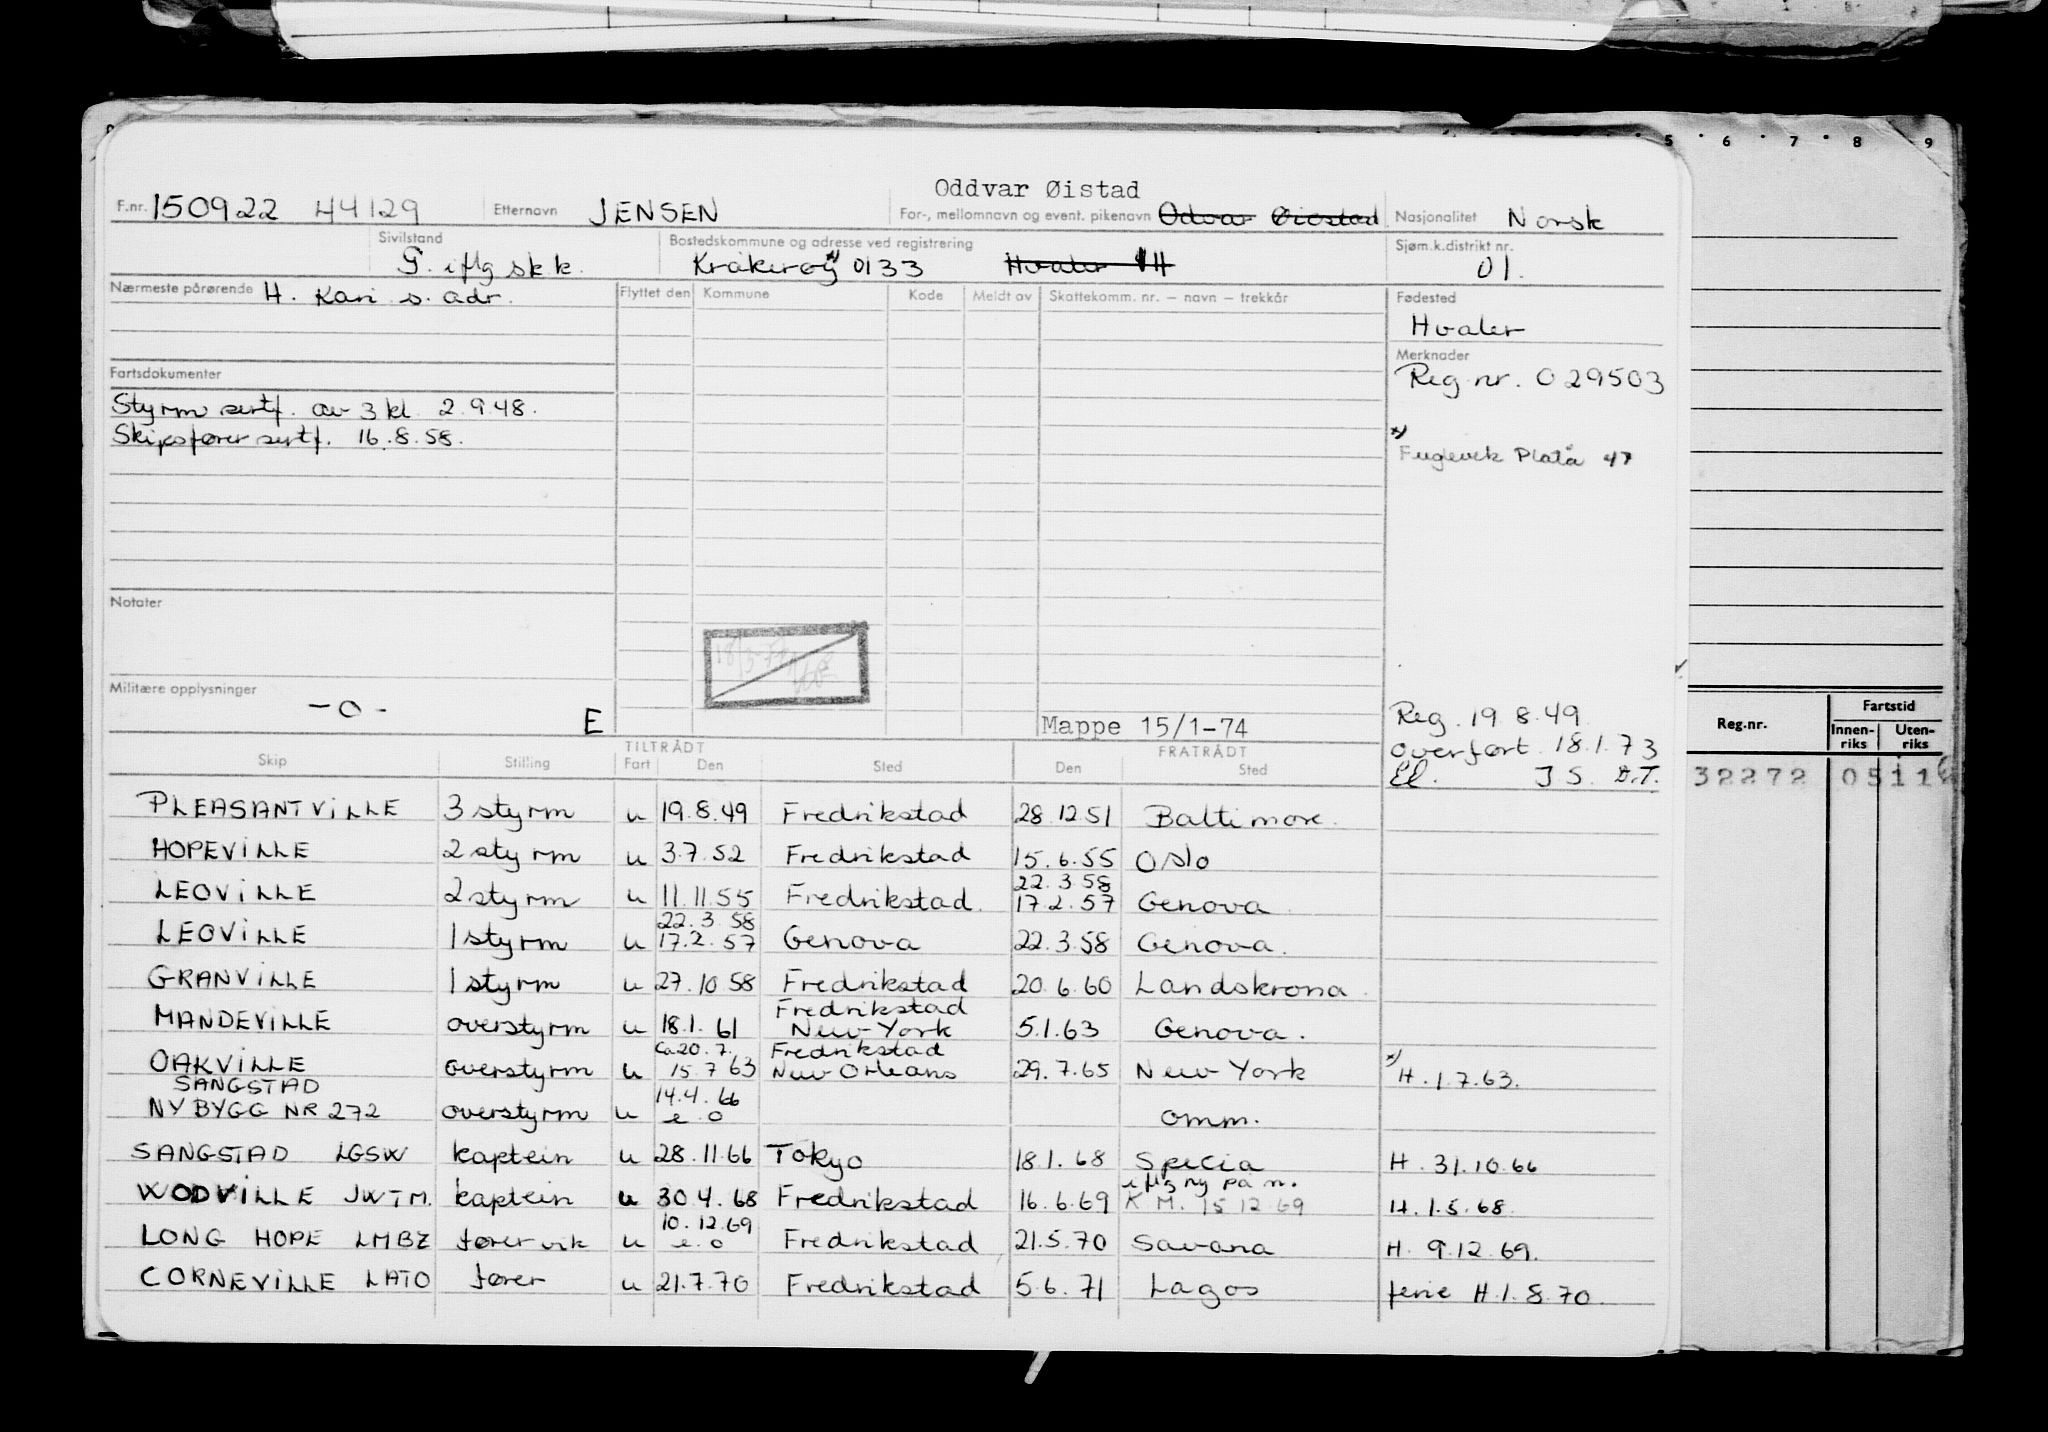 5 · 6 · 7 · 8 9
Oddvar Øistad
F.nr. 150922 44129 Etternavn JENSEN For-, mellomnavn og event. pikenavn Odvar Øiestad Nasjonalitet Norsk
Sivilstand Bostedskommune og adresse ved registrering Sjøm.k.distrikt nr.
G. iflg sk k. Kråkerøy x) 0133 Hvaler 111 01.
Nærmeste pårørende H. Kari s. adr. Flyttet den Kommune Kode Meldt av Skattekomm. nr. – navn – trekkår Fødested
Hvaler
Merknader
Fartsdokumenter Reg.nr. 029503
Styrm sertf. av 3 kl 2.9.48.
Skipsfører sertf. 16.8.58.
x)
Fuglevik Platå 47
Notater
Militære opplysninger
- 0 - E
Mappe 15/1-74
Reg. 19.8.49
overført 18.1.73
El. J S. D.T.
Reg.nr. Fartstid
Innen-riks Uten-riks
32272 0511
TILTRÅDT FRATRÅDT
Skip Stilling Fart Den Sted Den Sted
PLEASANTVILLE 3 styrm u 19.8.49 Fredrikstad 28.12.51 Baltimore.
HOPEVILLE 2 styrm u 3.7.52 Fredrikstad 15.6.55 Oslo
22.3.58
LEOVILLE 2 styrm u 11.11.55 Fredrikstad. 17.2.57 Genova
22.3.58
LEOVILLE 1 styrm u 17.2.57 Genova 22.3.58 Genova.
GRANVILLE 1 styrm u 27.10.58 Fredrikstad 20.6.60 Landskrona
Fredrikstad
MANDEVILLE overstyrm u 18.1.61 New-York 5.1.63 Genova.
ca 20.7. Fredrikstad
OAKVILLE overstyrm u 15.7.63 New Orleans 29.7.65 New York x) H.1.7.63.
SANGSTAD 14.4.66
NYBYGG NR 272 overstyrm u e.o omm.
SANGSTAD LGSW kaptein u 28.11.66 Tokyo 18.1.68 Specia H. 31.10.66
iflg ny på m.
WODVILLE JWTM. kaptein u 30.4.68 Fredrikstad 16.6.69 K.M. 15.12.69 H.1.5.68.
10.12.69
LONG HOPE LMBZ fører vik u e.o Fredrikstad 21.5.70 Savana H. 9.12.69.
CORNEVILLE LATO fører u 21.7.70 Fredrikstad 5.6.71 Lagos ferie H.1.8.70.